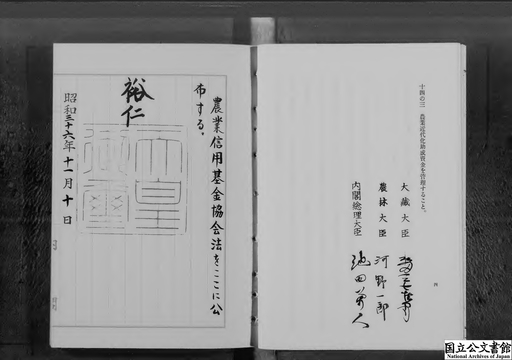 十四の三 農業近代化助成資金を管理すること。
大蔵大臣
農林大臣 河野一郎
内閣総理大臣 池田勇人
四
農業信用基金協会法をここに公
布する。
裕仁
天皇
御璽
昭和三十六年十一月十日
国立公文書館
National Archives of Japan